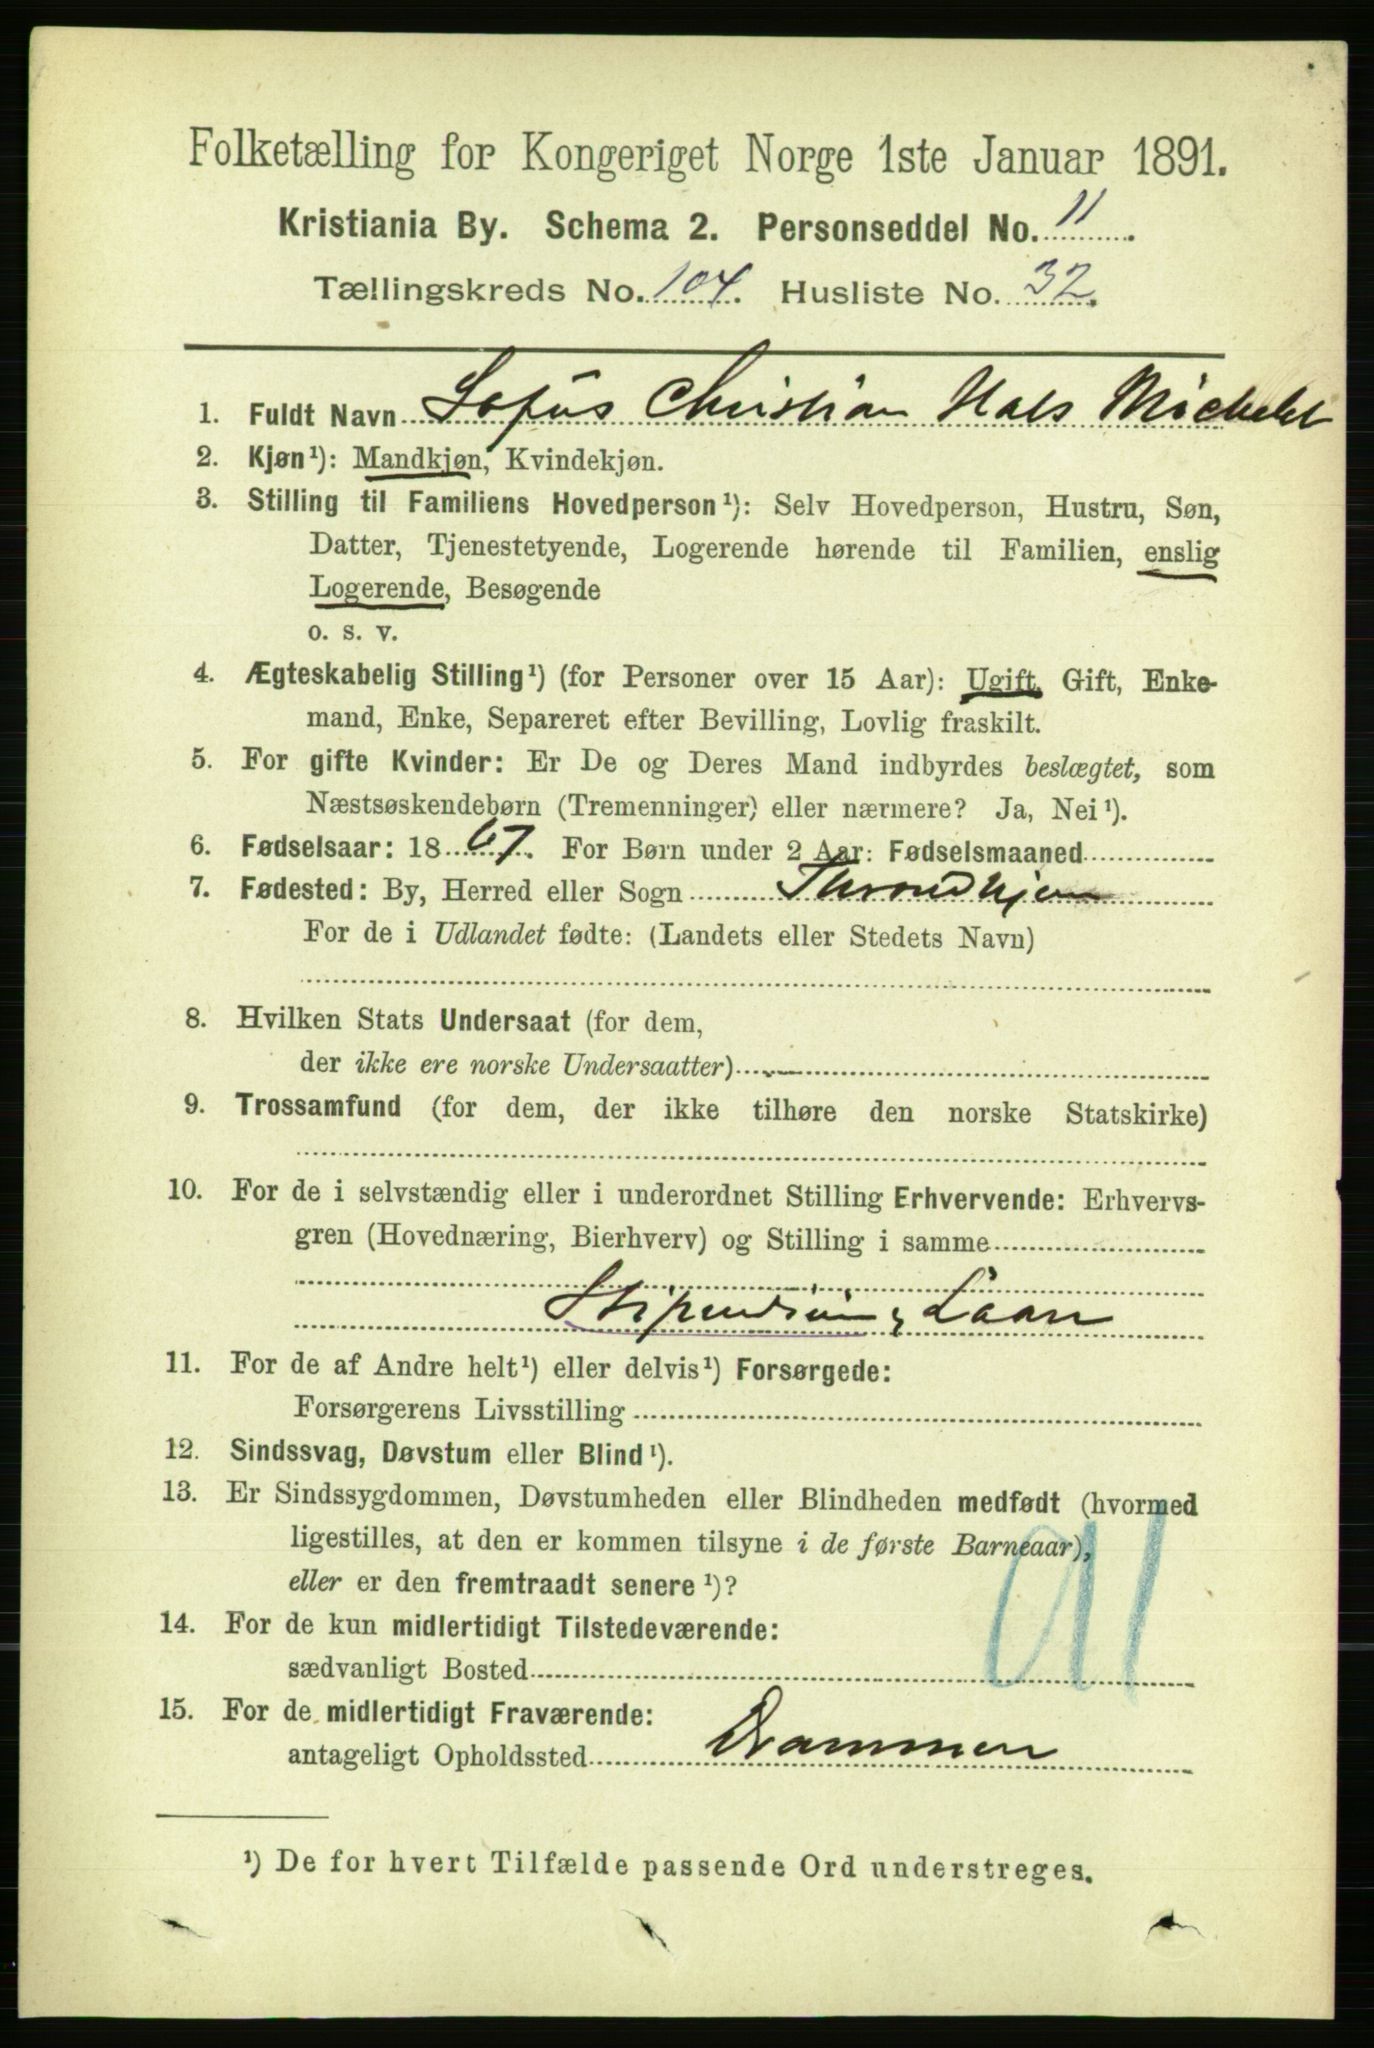 Folketælling for Kongeriget Norge 1ste Januar 1891.
Kristiania By. Schema 2. Personseddel No. 11.
Tællingskreds No. 104. Husliste No. 32.
1. Fuldt Navn Sofus Christian Hals Michelet
2. Kjøn¹): Mandkjøn, Kvindekjøn.
3. Stilling til Familiens Hovedperson¹): Selv Hovedperson, Hustru, Søn,
Datter, Tjenestetyende, Logerende hørende til Familien, enslig
Logerende, Besøgende
o. s. v.
4. Ægteskabelig Stilling¹) (for Personer over 15 Aar): Ugift, Gift, Enke-
mand, Enke, Separeret efter Bevilling, Lovlig fraskilt.
5. For gifte Kvinder: Er De og Deres Mand indbyrdes beslægtet, som
Næstsøskendebørn (Tremenninger) eller nærmere? Ja, Nei¹).
6. Fødselsaar: 1867. For Børn under 2 Aar: Fødselsmaaned
7. Fødested: By, Herred eller Sogn Throndhjem
For de i Udlandet fødte: (Landets eller Stedets Navn)
8. Hvilken Stats Undersaat (for dem,
der ikke ere norske Undersaatter)
9. Trossamfund (for dem, der ikke tilhøre den norske Statskirke)
10. For de i selvstændig eller i underordnet Stilling Erhvervende: Erhvervs-
gren (Hovednæring, Bierhverv) og Stilling i samme
Stipendium, Laan
11. For de af Andre helt¹) eller delvis¹) Forsørgede:
Forsørgerens Livsstilling
12. Sindssvag, Døvstum eller Blind¹).
13. Er Sindssygdommen, Døvstumheden eller Blindheden medfødt (hvormed
ligestilles, at den er kommen tilsyne i de første Barneaar),
eller er den fremtraadt senere¹)?
14. For de kun midlertidigt Tilstedeværende:
sædvanligt Bosted
15. For de midlertidigt Fraværende:
antageligt Opholdssted Drammen
¹) De for hvert Tilfælde passende Ord understreges.